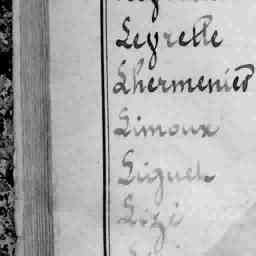 Leyrelle
Lhermenier
Limoux
Liguel